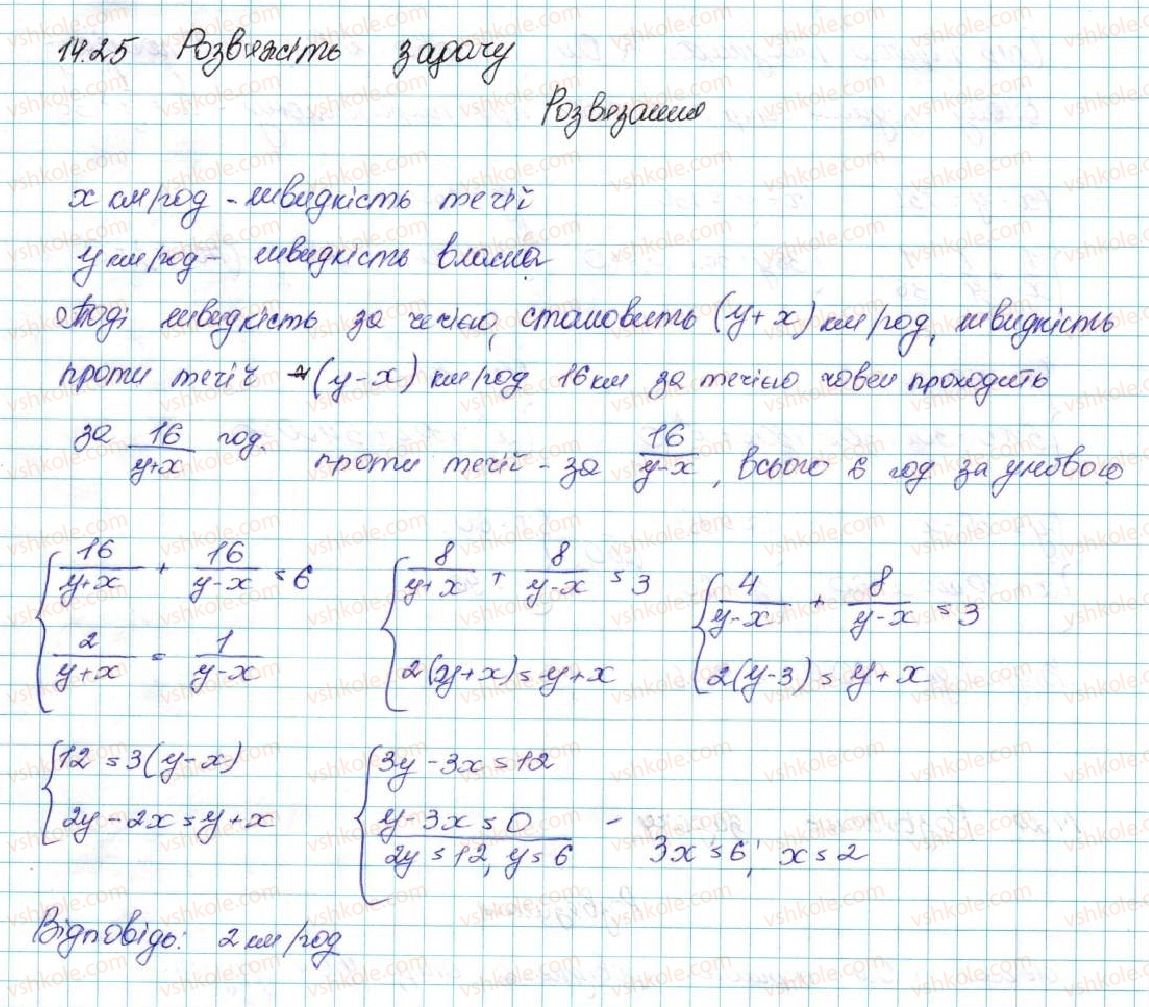 14.25 Розвяжіть задачу
Розвязання
x км/год - швидкість течії
y км/год - швидкість власна
Тоді швидкість за течією, становить (y+x) км/год, швидкість
проти течії - (y-x) км/год 16 км за течією човен проходить
за 16/(y+x) год. проти течії - за 16/(y-x), всього 6 год за умовою
{ 16/(y+x) + 16/(y-x) = 6 { 8/(y+x) + 8/(y-x) = 3 { 4/(y-x) + 8/(y-x) = 3
2/(y+x) = 1/(y-x) 2(2y+x) = y+x 2(y-3) = y+x
{ 12 = 3(y-x) { 3y-3x = 12
2y-2x = y+x y-3x = 0 -
2y = 12, y = 6 3x = 6, x = 2
Відповідь: 2 км/год